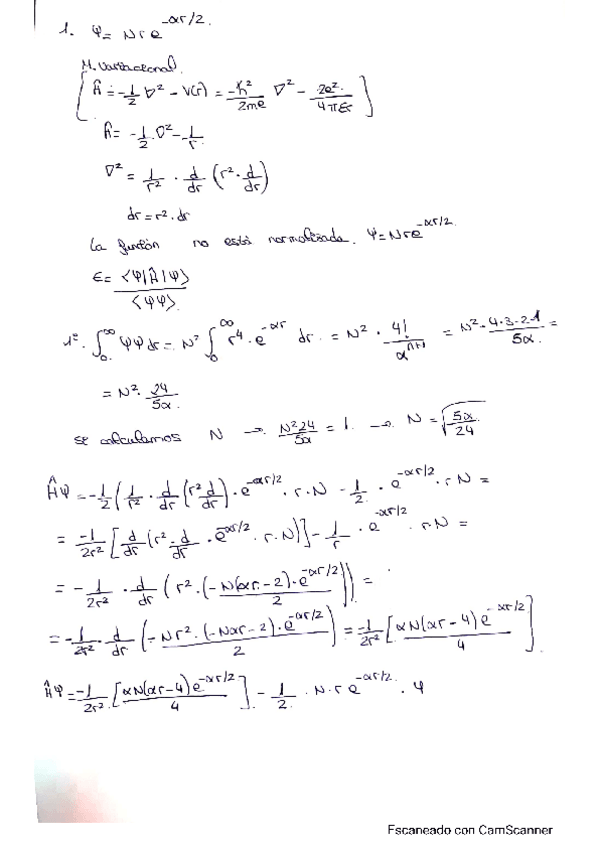 1. Ψ = N r e^{-αr/2}.
M. Variacional.
[ Ĥ = -1/2 ∇² - V(r) = -ħ²/2me ∇² - 2e²/4πε ]
Ĥ = -1/2 ∇² - 1/r
∇² = 1/r² · d/dr (r² · d/dr)
dr = r² · dr
La función no está normalizada. Ψ = N r e^{-αr/2}
ε = <Ψ|Ĥ|Ψ> / <ΨΨ>
1º. ∫₀^∞ ΨΨ dr = N² ∫₀^∞ r⁴ · e^{-αr} dr = N² · 4! / α^{n+1} = N² · 4·3·2·1 / 5α =
= N² · 24 / 5α
se calculamos N → N² 24 / 5α = 1 → N = √(5α / 24)
ĤΨ = -1/2 (1/r² · d/dr (r² d/dr) · e^{-αr/2} · r · N - 1/2 · e^{-αr/2} · r N =
= -1/2r² [d/dr (r² · d/dr · e^{-αr/2} · r · N)] - 1/r · e^{-αr/2} · r N =
= -1/2r² · d/dr (r² · (-N(αr-2) · e^{-αr/2} / 2)) =
= -1/2r² · d/dr (-N r² · (-Nαr-2) · e^{-αr/2} / 2) = -1/2r² [αN(αr-4) e^{-αr/2} / 4]
ĤΨ = -1/2r² [αN(αr-4) e^{-αr/2} / 4] - 1/2 · N · r e^{-αr/2} · Ψ
Escaneado con CamScanner